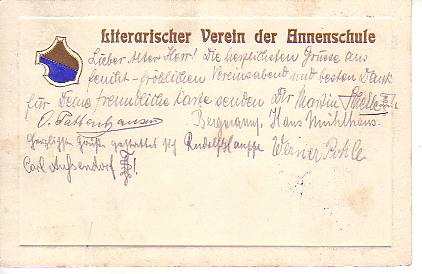 Literarischer Verein der Annenschule
Lieber Alter Herr! Die herzlichsten Grüsse aus
feucht-fröhlichen Vereinsabend und besten Dank
für Deine freundliche Karte senden Dir Martin
O. Tattenhausen Bergmann. Hans Mühlhaus.
Herzlichste Grüße gestattet sich Rudolf
Carl Außendorf Werner